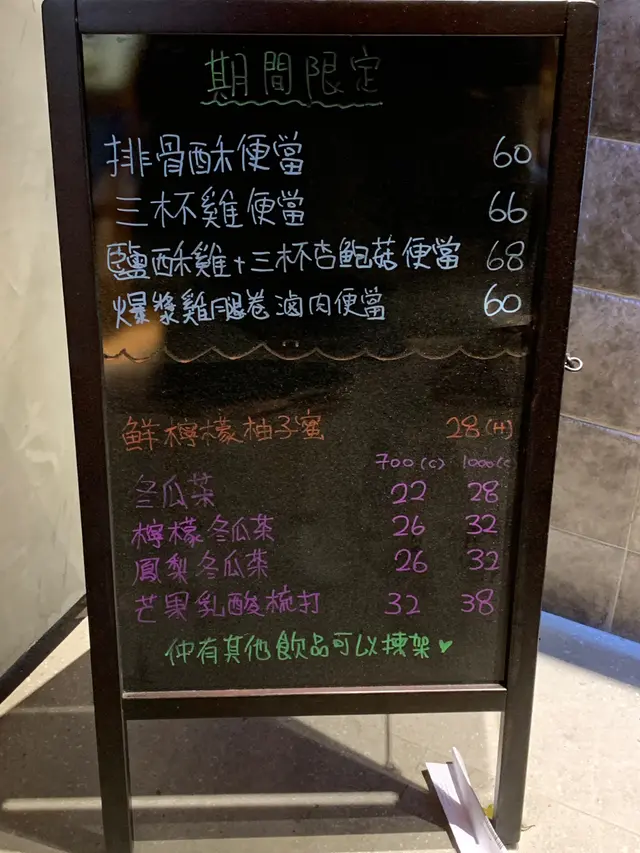 期間限定
排骨酥便當 60
三杯雞便當 66
鹽酥雞+三杯杏鮑菇便當 68
爆漿雞腿卷滷肉便當 60
鮮檸檬柚子蜜 28(H)
700(C) 1000(C
冬瓜茶 22 28
檸檬冬瓜茶 26 32
鳳梨冬瓜茶 26 32
芒果乳酸梳打 32 38
仲有其他飲品可以揀架♥